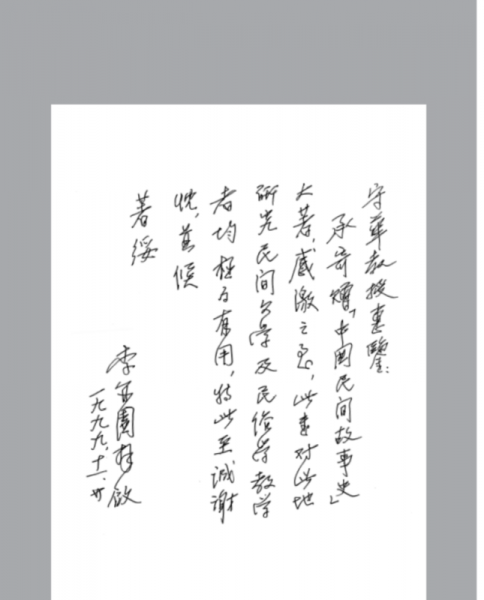 守華教授惠鑒:
承寄贈「中國民間故事史」
大著,感激之至,此書對此地
研究民間文學及民俗學教學
者均極為有用,特此至誠謝
忱,並候
著綏
李亦園拜啟
一九九九、十一、廿